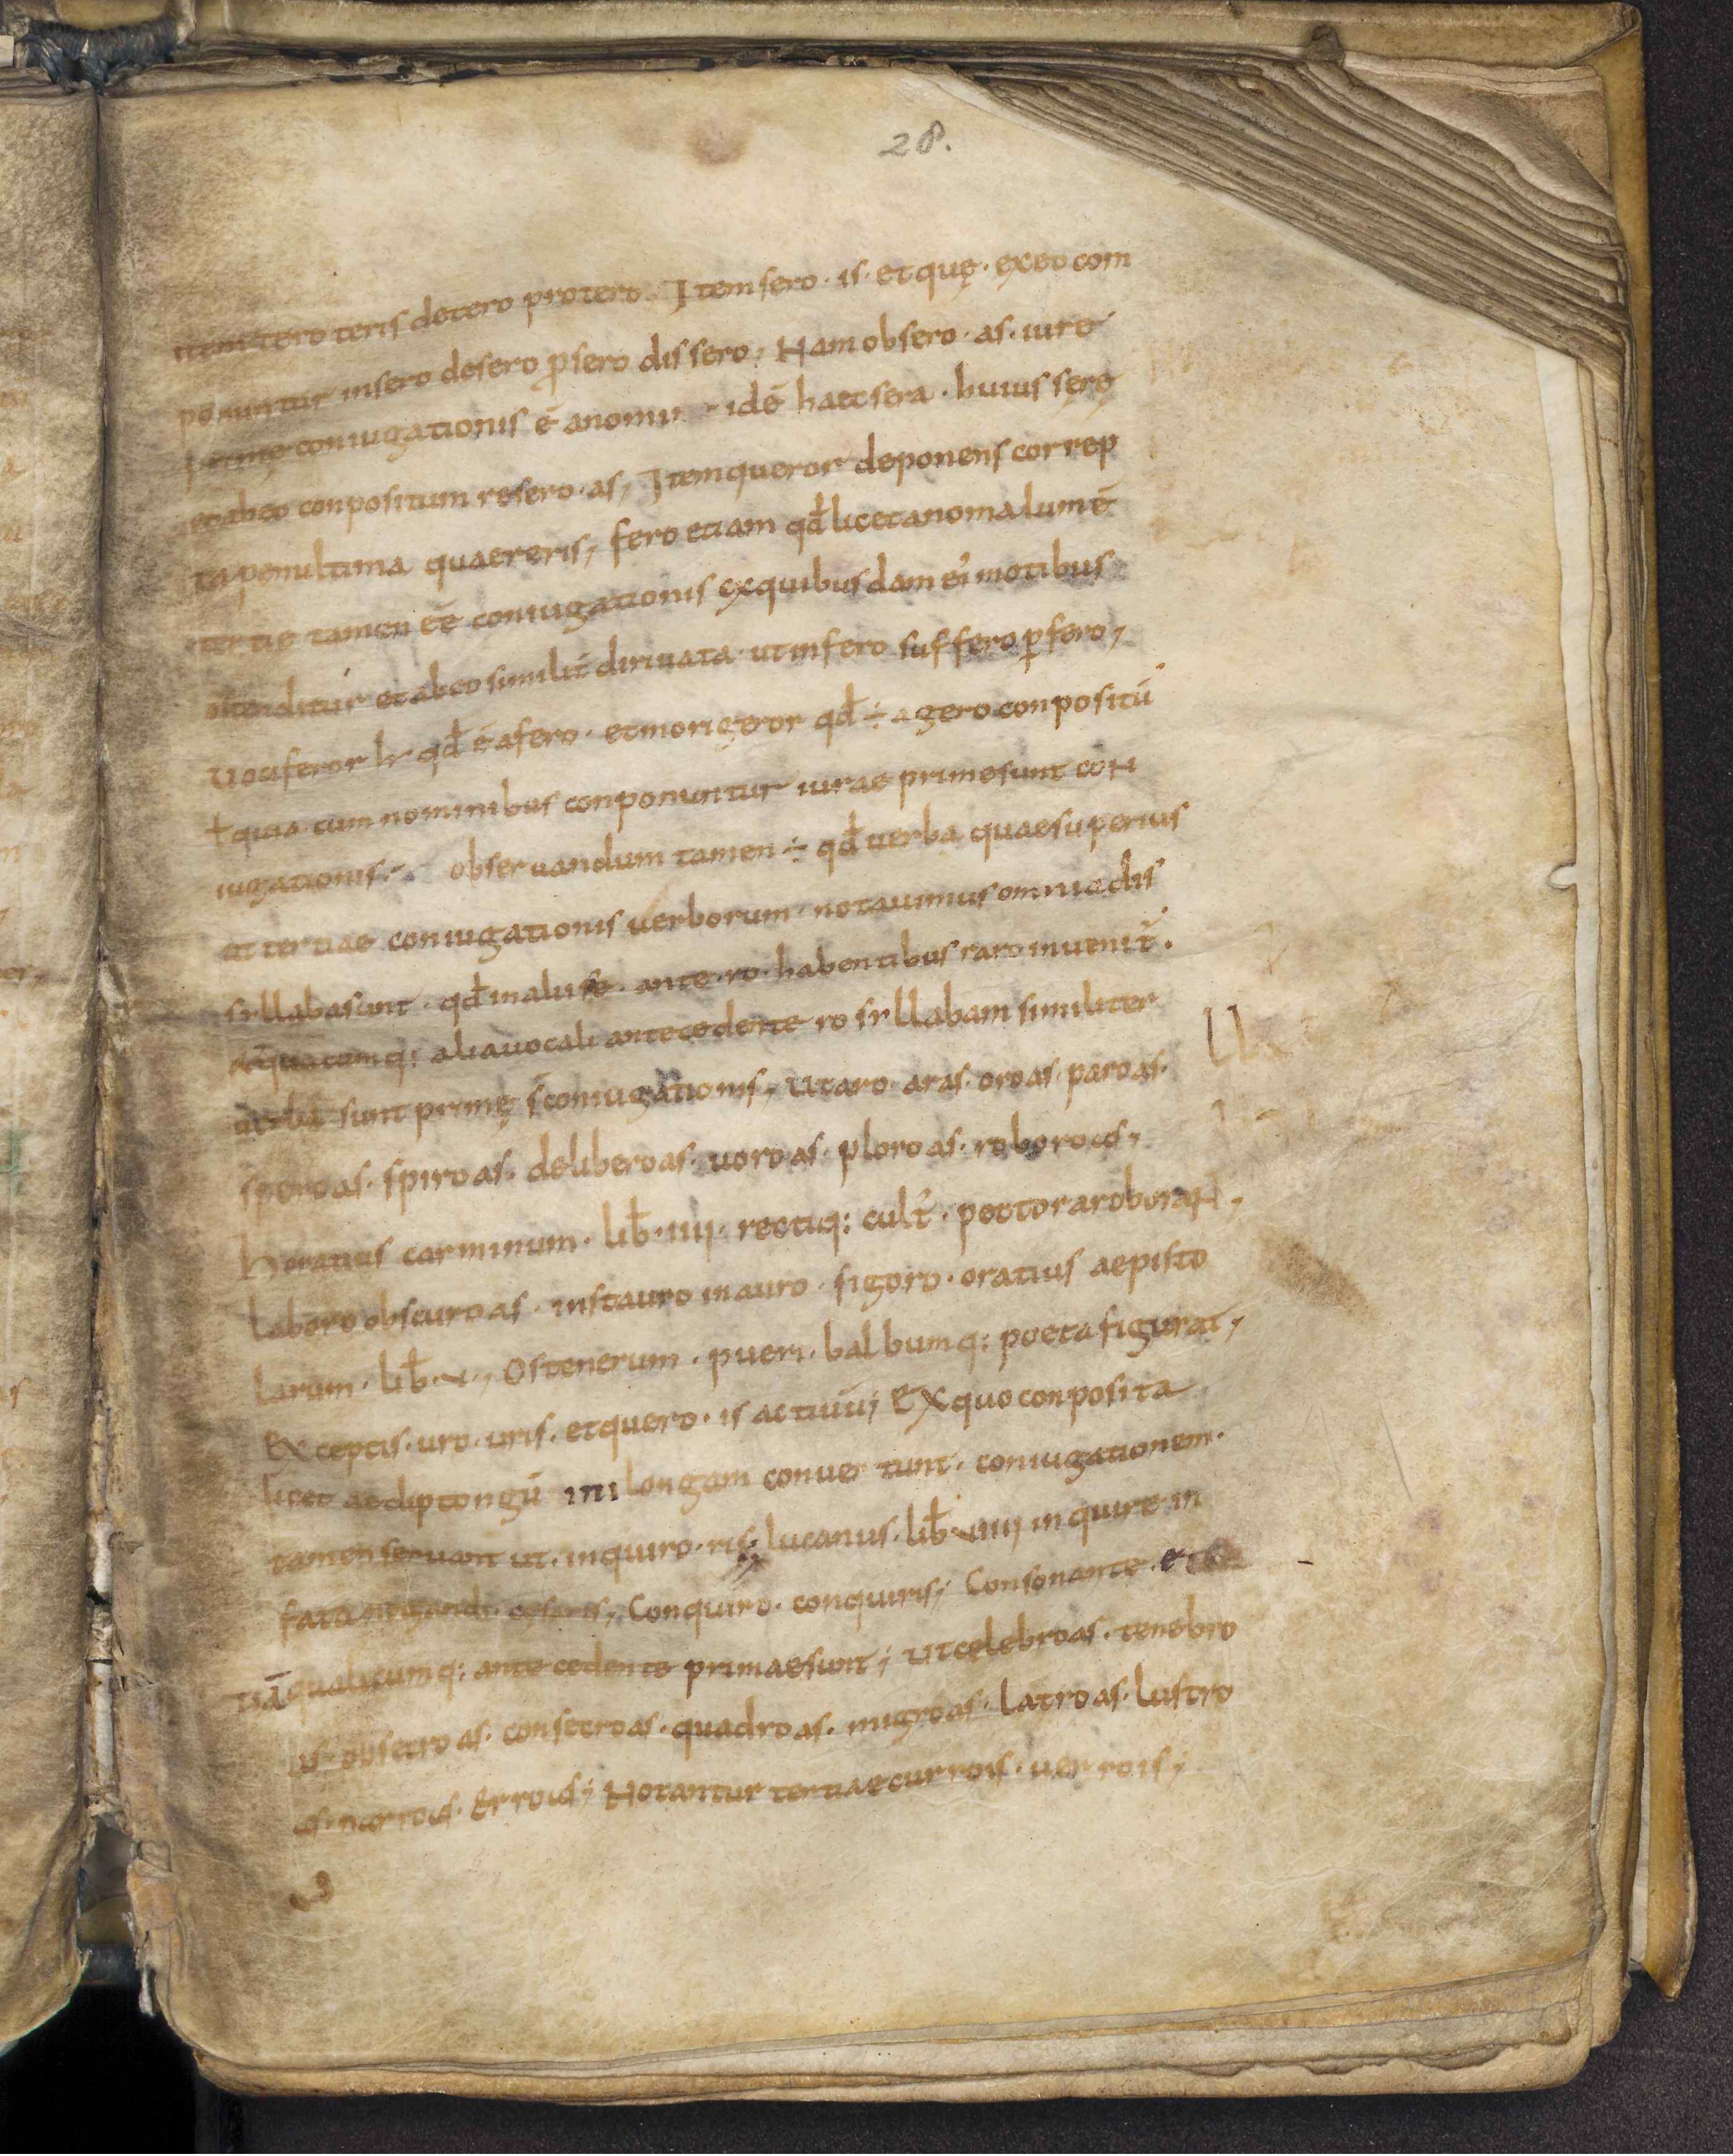 28.
item tero teris detero protero. Item sero · is · et quę · ex eo com
ponuntur insero desero p̱sero dissero, Nam obsero · as · iure
prime coniugationis ē a nomi ide͞ haec sera · huius serę
et ab eo conpositum resero · as, Item queror deponens correp
ta penultima quaereris, fero etiam qđ licet anomalum ē
tertie tamen eē̄ coniugationis ex quibusdam ei' motibus
ostenditur et ab eo similit̄ dirivata · ut infero suffero p̱fero,
vociferor qđ ē a fero · et morigeror qđ ÷ a gero conpositū
+ quia cum nominibus conponuntur iurae prime sunt con
iugationis. Observandum tamen ÷ qđ verba quae superius
et tertiae coniugationis verborum · notavimus omnia dis
syllaba sunt · qđ in aliis e · ante · ro · habentibus raro invenit᷑.
quacumq: alia vocali antecedente ro syllabam similiter
verba sunt primę s̄ coniugationis, Ut aro · aras · oro as · paro as.
spero as · spiro as · delibero as · voro as · ploro as · roboro as,
Horatius carminum · lib̄ · iiii · rectiq: cult᷑ · pectora roborant,
laboro obscuro as · instauro inauro · figoro · oratius aepisto
larum · lib̄ · , Os tenerum · pueri · balbumq: poeta figurat,
Exceptis · uro · uris · et quero · is activū; Ex quo conposita
licet ae diptongū in i longam convertunt · coniugationem.
tamen servant ut · inquiro · ris; lucanus · lib̄ · viiii inquire in
fata Conquiro · conquiris; Consonante · et
tiā qualicumq: antecedente primae sunt; Ut celebro as · tenebro
as · obsecro as · consecro as · quadro as · migro as · latro as · lustro
as · narro as · Erro as; Notantur tertiae curro is · verro is;